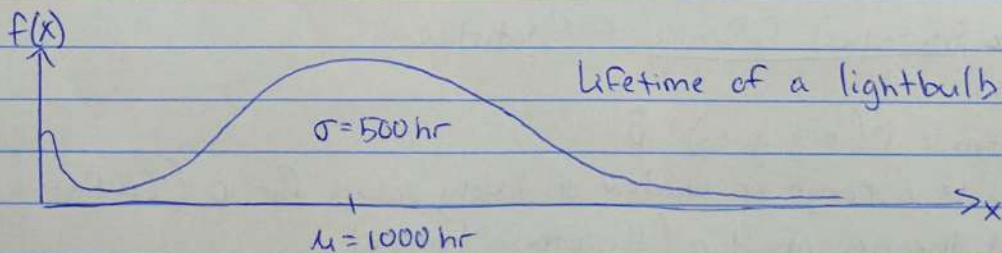 f(x)
Lifetime of a lightbulb
σ=500 hr
x
μ=1000 hr